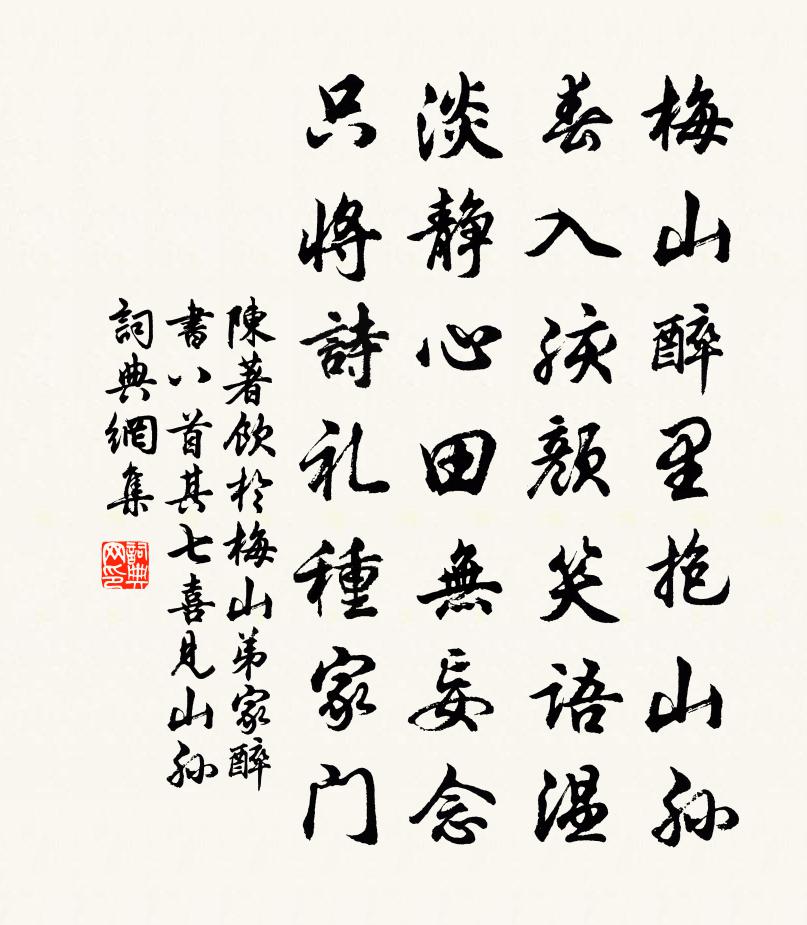 梅山醉里抱山孙
春入孩颜笑语温
淡静心田無妄念
只将詩礼種家门
陳著飲於梅山弟家醉
書八首其七喜見山孙
詞典網集
詞典
网印